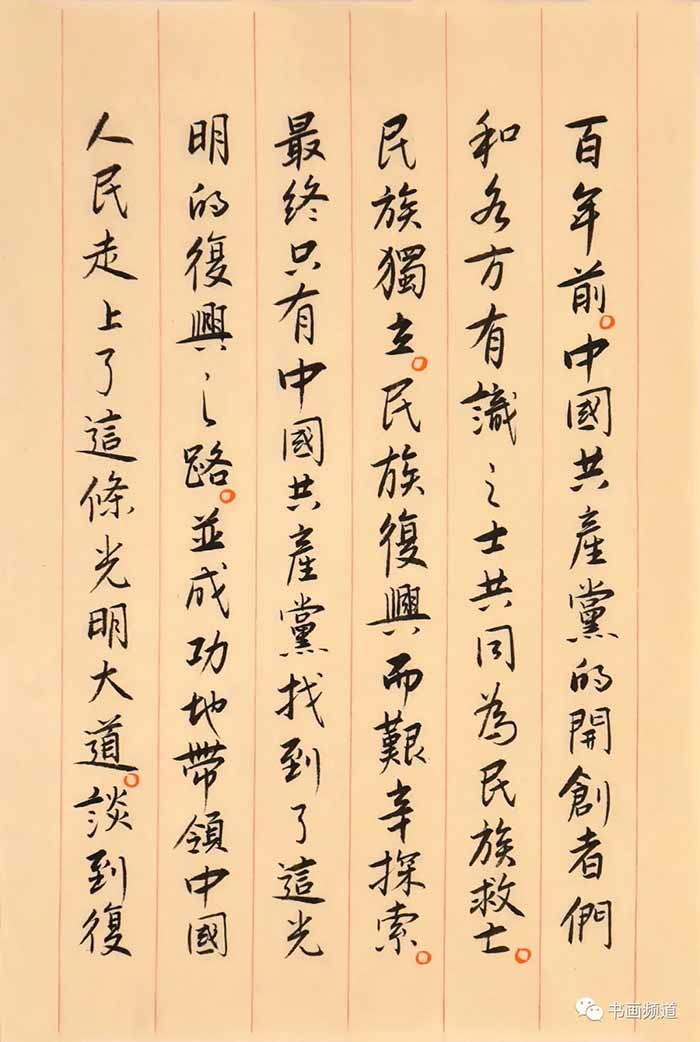 百年前。中國共產黨的開創者們
和各方有識之士共同為民族救亡。
民族獨立。民族復興而艱辛探索。
最終只有中國共產黨找到了這光
明的復興之路。並成功地帶領中國
人民走上了這條光明大道。談到復
书画频道